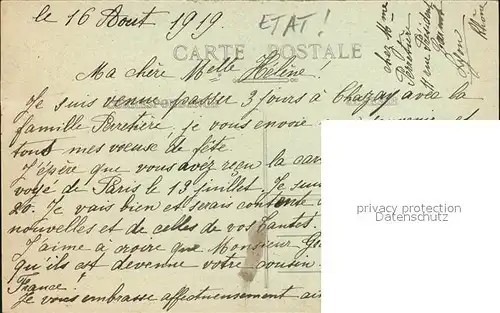 le 16 Août 1919.
ETAT!
CARTE POSTALE
chez Mme
Perretière
11 rue Président
Carnot
Lyon
Rhône
Ma chère Melle Hélène.
Je suis venue passer 3 jours à Chazay avec la
famille Perretière, je vous envoie et
tous mes voeux de fête.
J'éspère que vous avez reçu la car
voyé de Paris le 13 juillet. Je suis
20. Je vais bien et serais contente
nouvelles et de celles de vos tantes.
J'aime à croire que Monsieur
qu'ils est devenue votre cousin
France.
Je vous embrasse affectueusement ain
privacy protection
Datenschutz